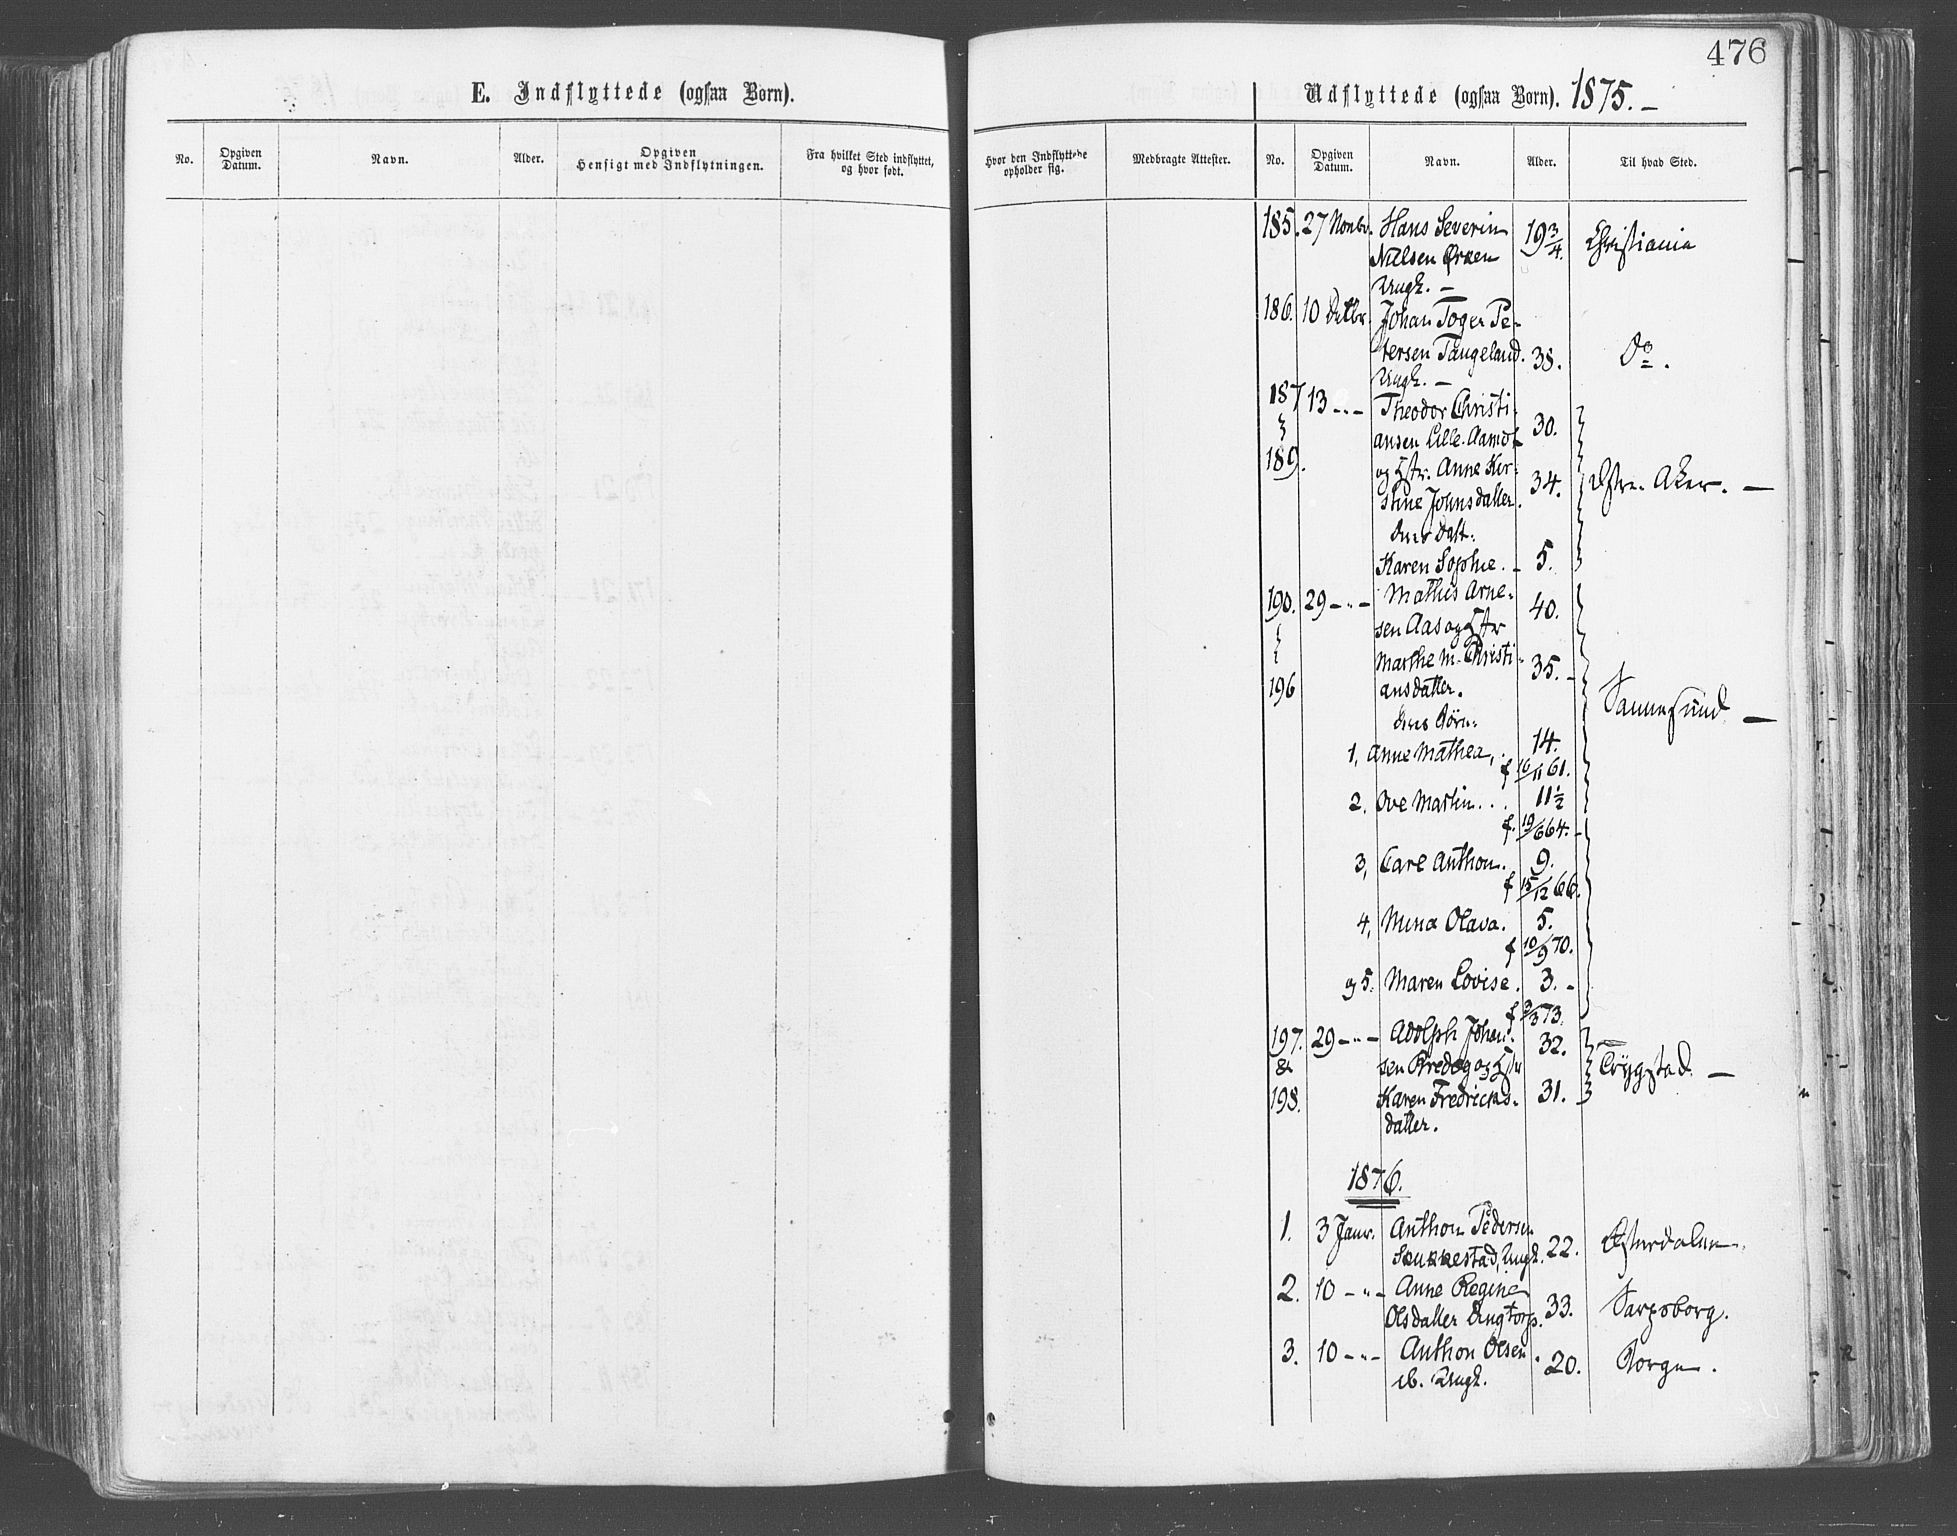 476
E. Indflyttede (ogsaa Børn).
Udflyttede (ogsaa Børn). 1875. –
No.
Opgiven Datum.
Navn.
Alder.
Opgiven
Hensigt med Indflytningen.
Fra hvilket Sted indflyttet,
og hvor født.
Hvor den Indflyttede
opholder sig.
Medbragte Attester.
No.
Opgiven Datum.
Navn.
Alder.
Til hvad Sted.
185. 27 Novbr. Hans Severin 19 3/4. Christiania
Nielsen
Ungk. –
186. 10 Decbr. Johan Toger Pe-
tersen Tangeland. 38. Do.
Ungk. –
187 13 –"– Theodor Christi-
ansen Lille 30.
189. og Hstr. Anne Kir-
stine Johnsdatter. 34. Østre Aker. –
Karen Sophie. – 5.
190. 29 –"– Mathis Arne- 40.
sen Aas og Hstr
Marthe M. Christi- 35. –
196 ansdatter. Sannesund –
deres Børn:
1, Anne Mathea, . 14.
f 16/11 61.
2. Ove Martin . . . 11 1/2
f. 19/6 64. –
3, Carl Anthon. 9.
f 15/12 66.
4, Mina Olava. 5.
f 10/9 70.
og 5. Maren Lovise. 3. –
f 3/3 73.
197. 29 –"– Adolph Johan- 32.
& sen og Hstr Trygstad –
198. Karen Fredricks- 31.
datter.
1876.
1. 3 Janr. Anthon Pedersen
Skukkestad, Ungk. 22. Østerdalen.
2. 10 –"– Anne Regine
Olsdatter 33. Sarpsborg.
3. 10 –"– Anthon Olsen . 20. Borge.
ib. Ungk.